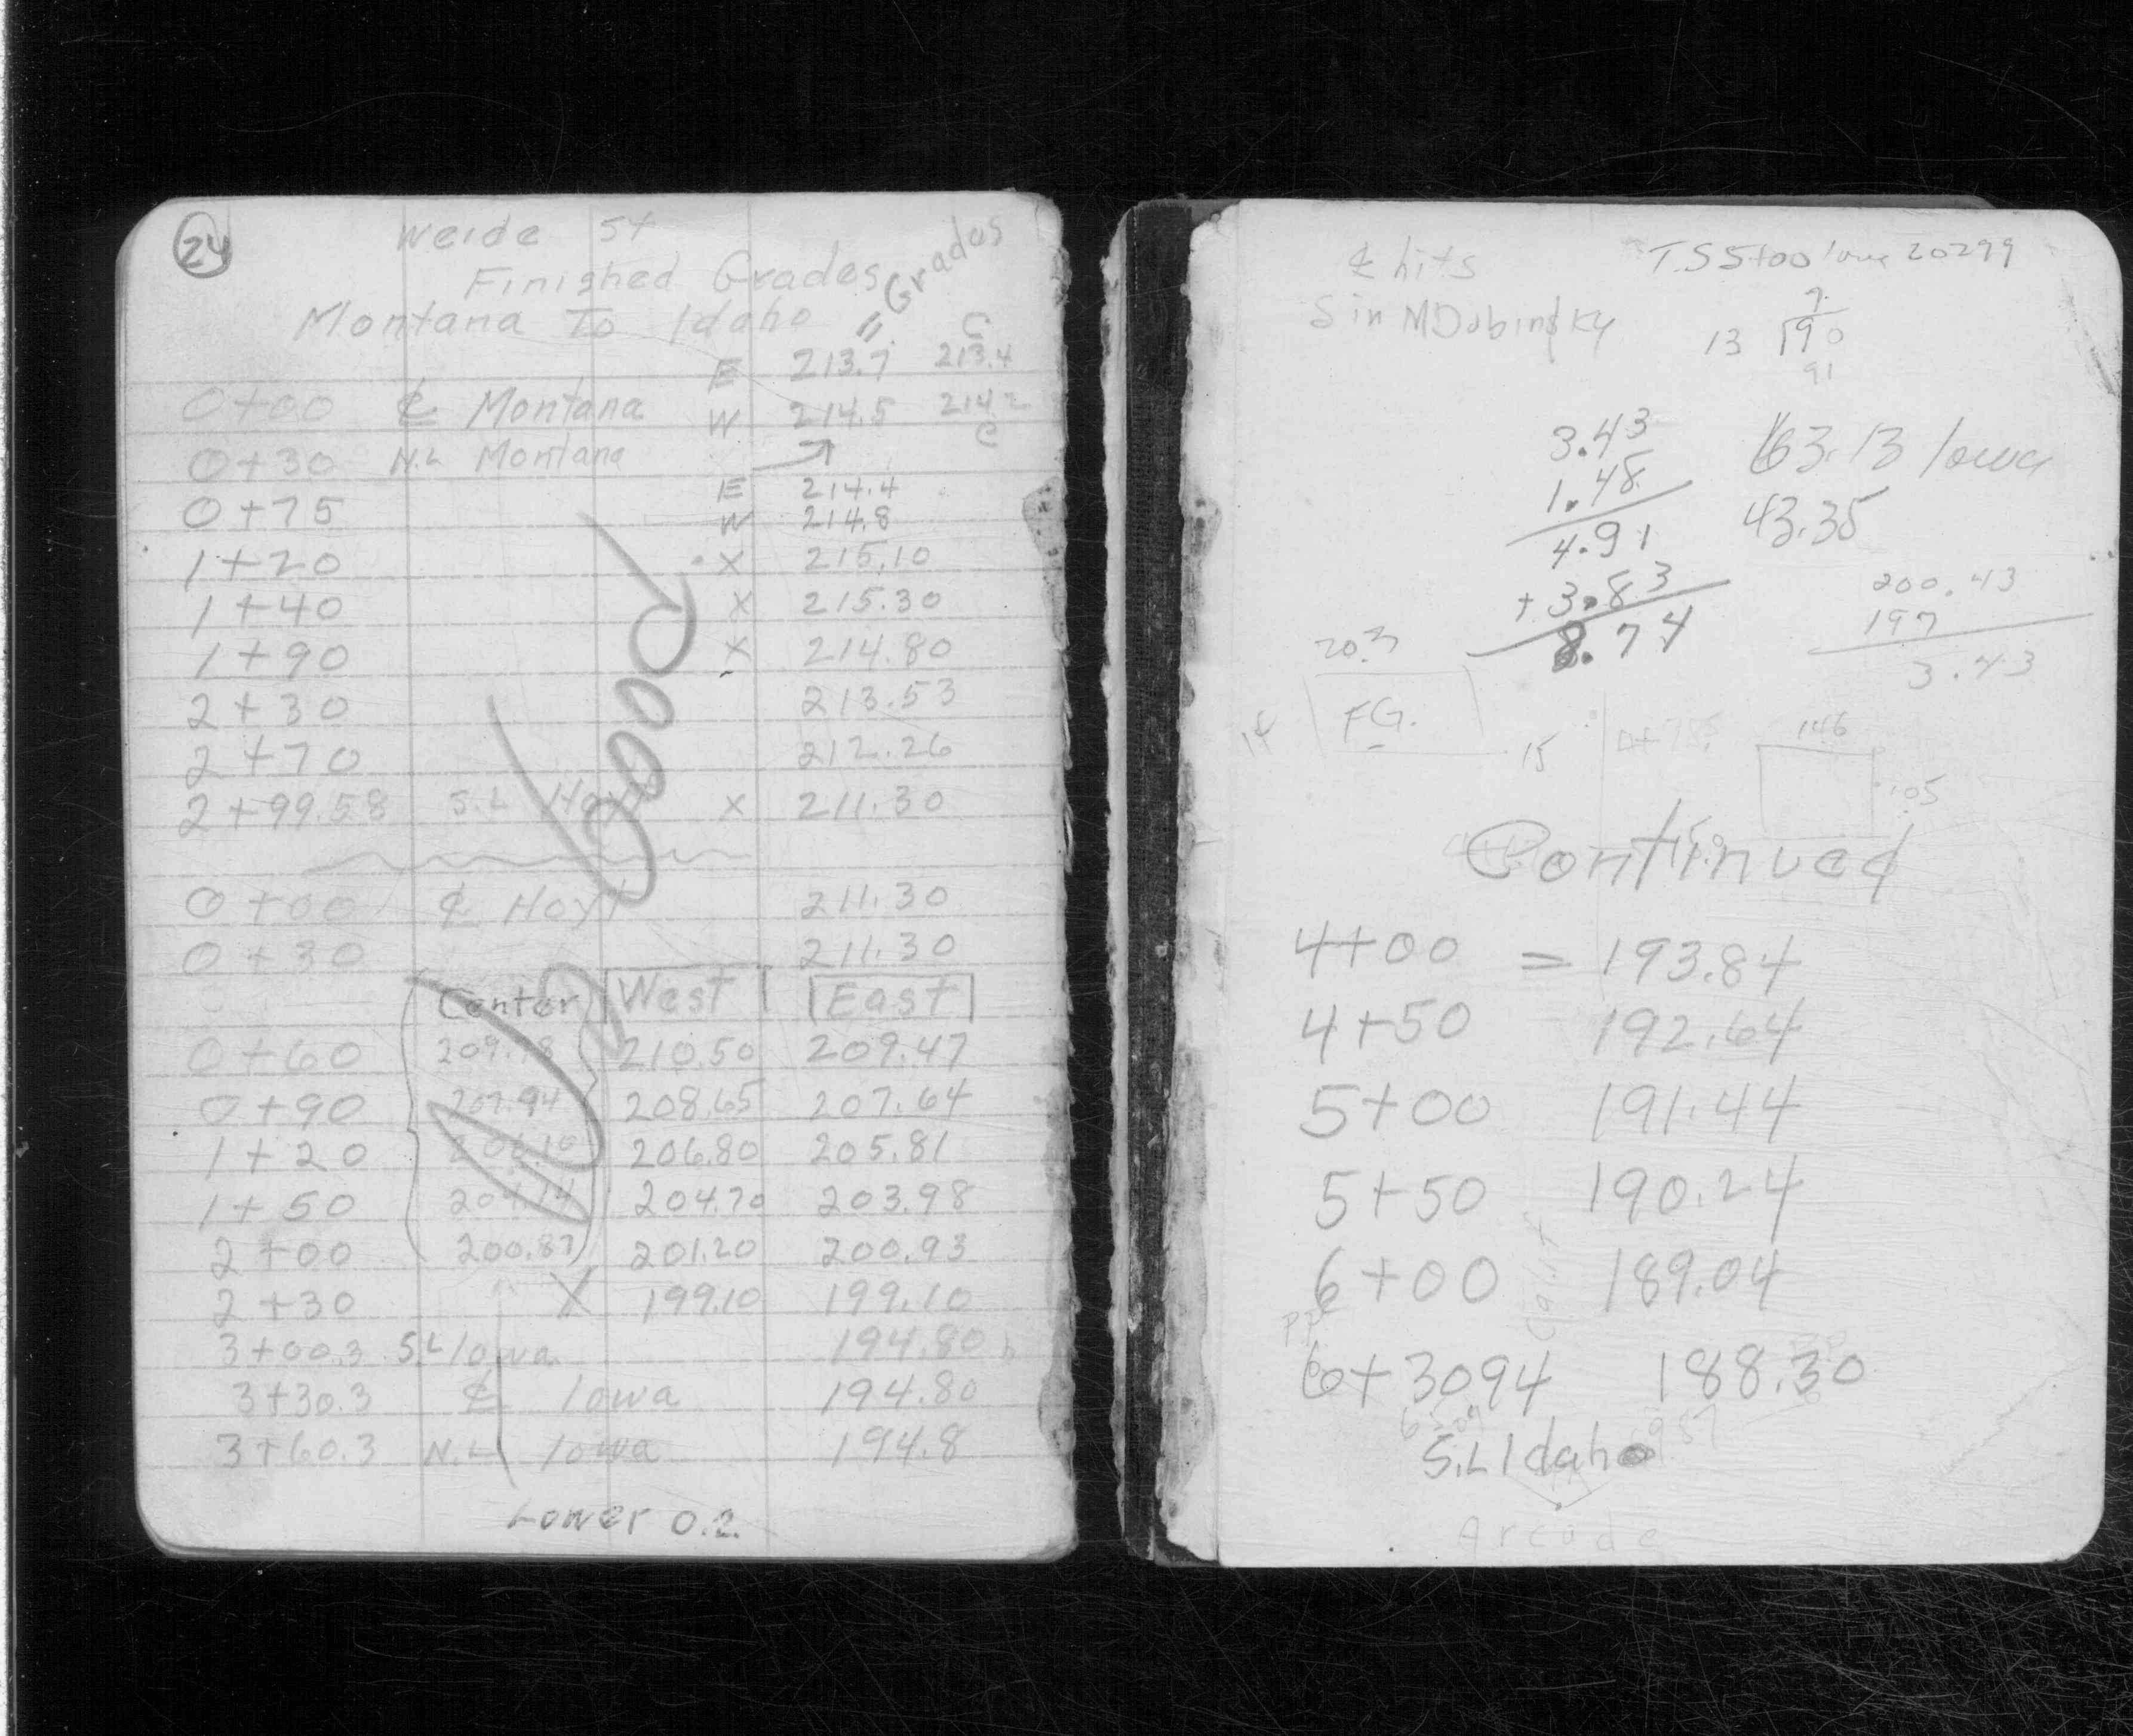 24
Weide St
Finished Grades
Montana To Idaho " Grades
C
E 213.7 213.4
0+00 ℄ Montana W 214.5 214.2
C
0+30 N.L Montana
E 214.4
0+75 W 214.8
1+20 X 215.10
1+40 X 215.30
1+90 X 214.80
2+30 213.53
2+70 212.26
2+99.58 S.L Hoyt X 211.30
Good
0+00 ℄ Hoyt 211.30
0+30 211.30
Center West East
0+60 209.78 210.50 209.47
0+90 207.94 208.65 207.64
1+20 206.10 206.80 205.81
1+50 204.14 204.70 203.98
2+00 200.87 201.20 200.93
2+30 X 199.10 199.10
3+00.3 S.L Iowa 194.80
3+30.3 ℄ Iowa 194.80
3+60.3 N.L Iowa 194.8
Lower 0.2
℄ hits T.S 5+00 Iowa 202 99
S in M Dabinsky
7
13 90
91
3.43 163.13 Iowa
1.48 43.35
4.91
+3.83 200.43
8.74 197
3.43
20.3
FG.
14 15
146
105
Continued
4+00 = 193.84
4+50 192.64
5+00 191.44
5+50 190.24
6+00 189.04
PP
6+3094 188.30
S.L Idaho
Arcade